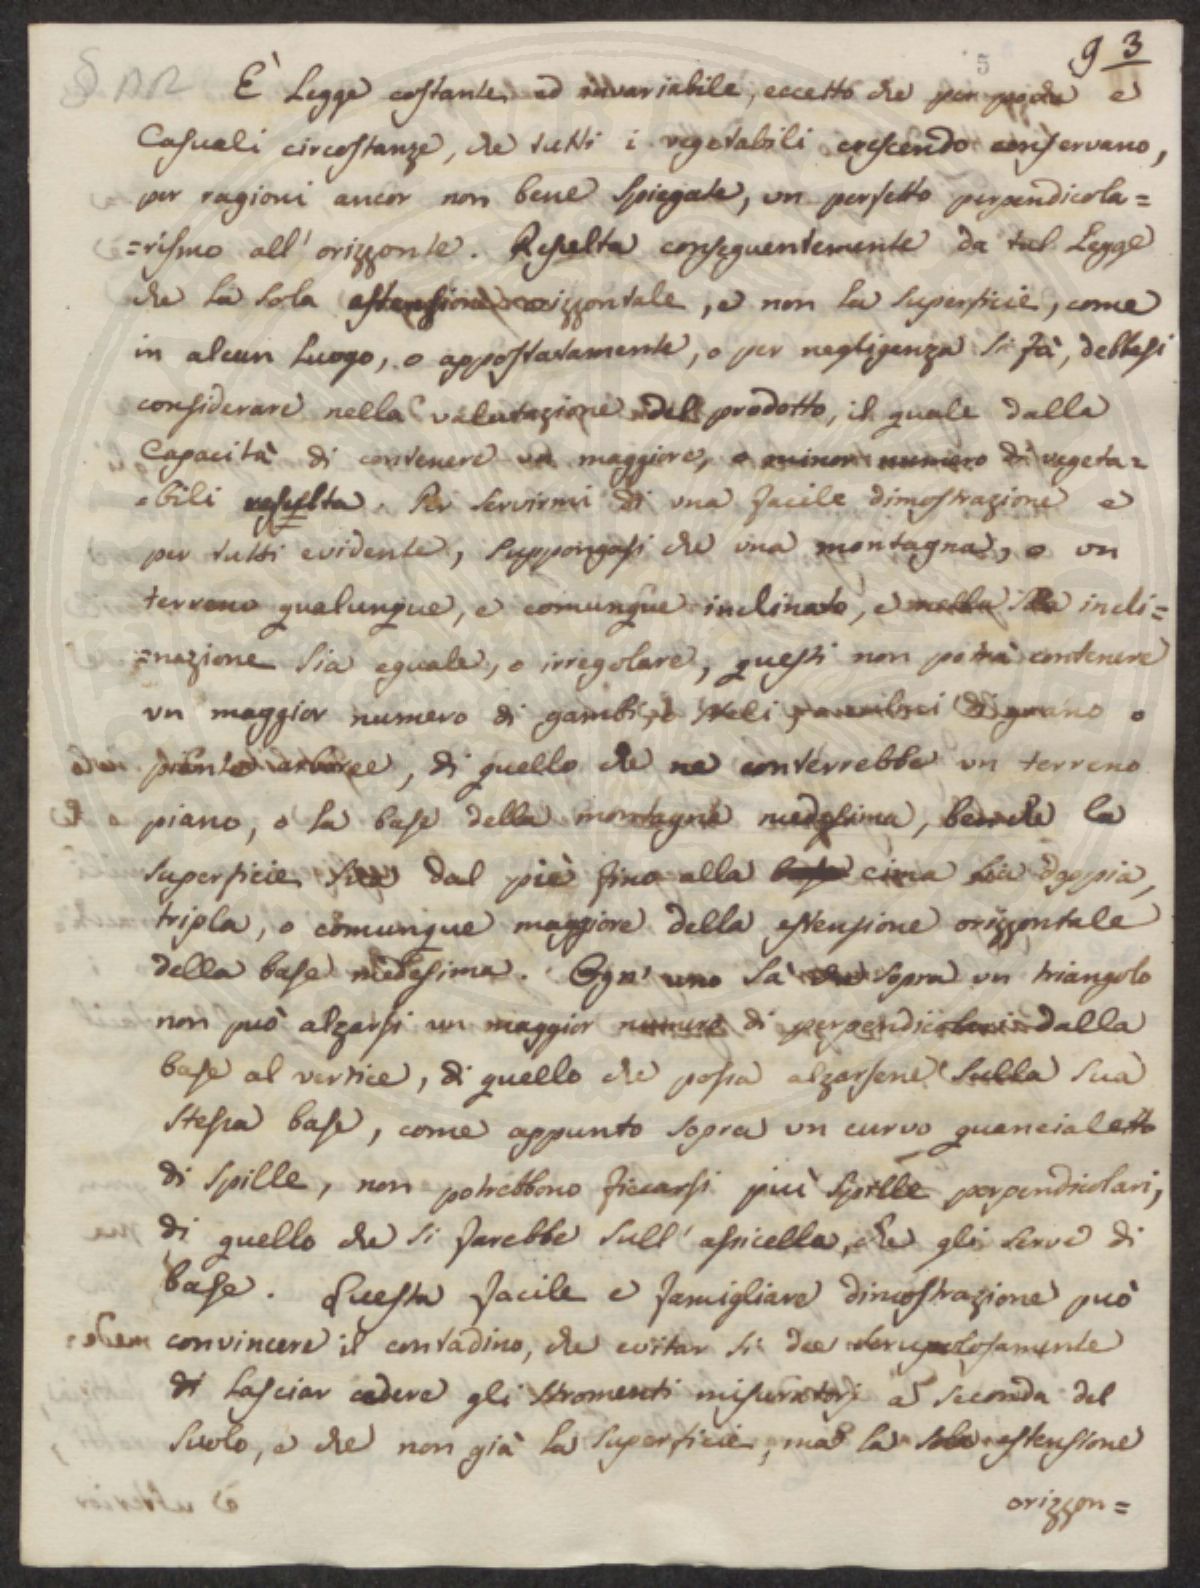 93
È Legge costante, ed invariabile, eccetto che per poche e
Casuali circostanze, che tutti i vegetabili crescendo conservano,
per ragioni ancor non bene spiegate, un perfetto perpendicola=
=rismo all' orizzonte. Resulta conseguentemente da tal Legge
che la sola estensione orizzontale, e non la superficie, come
in alcun luogo, o appostatamente, o per negligenza si fà, debbasi
considerare nella valutazione del prodotto, il quale dalla
Capacità di contenere un maggiore, o minor numero di vegeta=
=bili resulta. Per servirmi di una facile dimostrazione e
per tutti evidente, suppongasi che una montagna, o un
terreno qualunque, e comunque inclinato, e nella sua incli=
=nazione sia eguale, o irregolare, questi non potrà contenere
un maggior numero di gambi, o steli di grano o
piante arboree, di quello che ne conterrebbe un terreno
piano, o la base della montagna medesima, benche la
superficie sua dal piè fino alla base cima sia doppia,
tripla, o comunque maggiore della estensione orizzontale
della base medesima. Ogn' uno sà che sopra un triangolo
non può alzarsi un maggior numero di perpendicolari dalla
base al vertice, di quello che possa alzarsene sulla sua
stessa base, come appunto sopra un curvo guancialetto
di spille, non potrebbono ficcarsi più spille perpendicolari,
di quello che si farebbe sull' assicella, che gli serve di
base. Questa facile e famigliare dimostrazione può
convincere il contadino, che evitar si dee scrupolosamente
di lasciar cadere gli stromenti misuratorj a seconda del
suolo, e che non già la superficie, ma la sola estensione
orizzon=